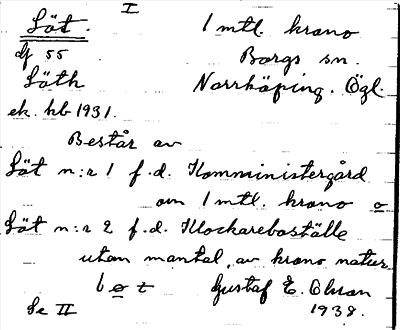 I
Löt. 1 mtl. krono
df 55 Borgs sn.
Löth Norrköping. Ögl.
ek. hb 1931.
Består av
Löt n:r 1 f.d. Komministergård
om 1 mtl. krono o
Löt n:r 2 f.d. Klockareboställe
utan mantal, av krono natur
Gustaf E. Olsson
Se II 1938.